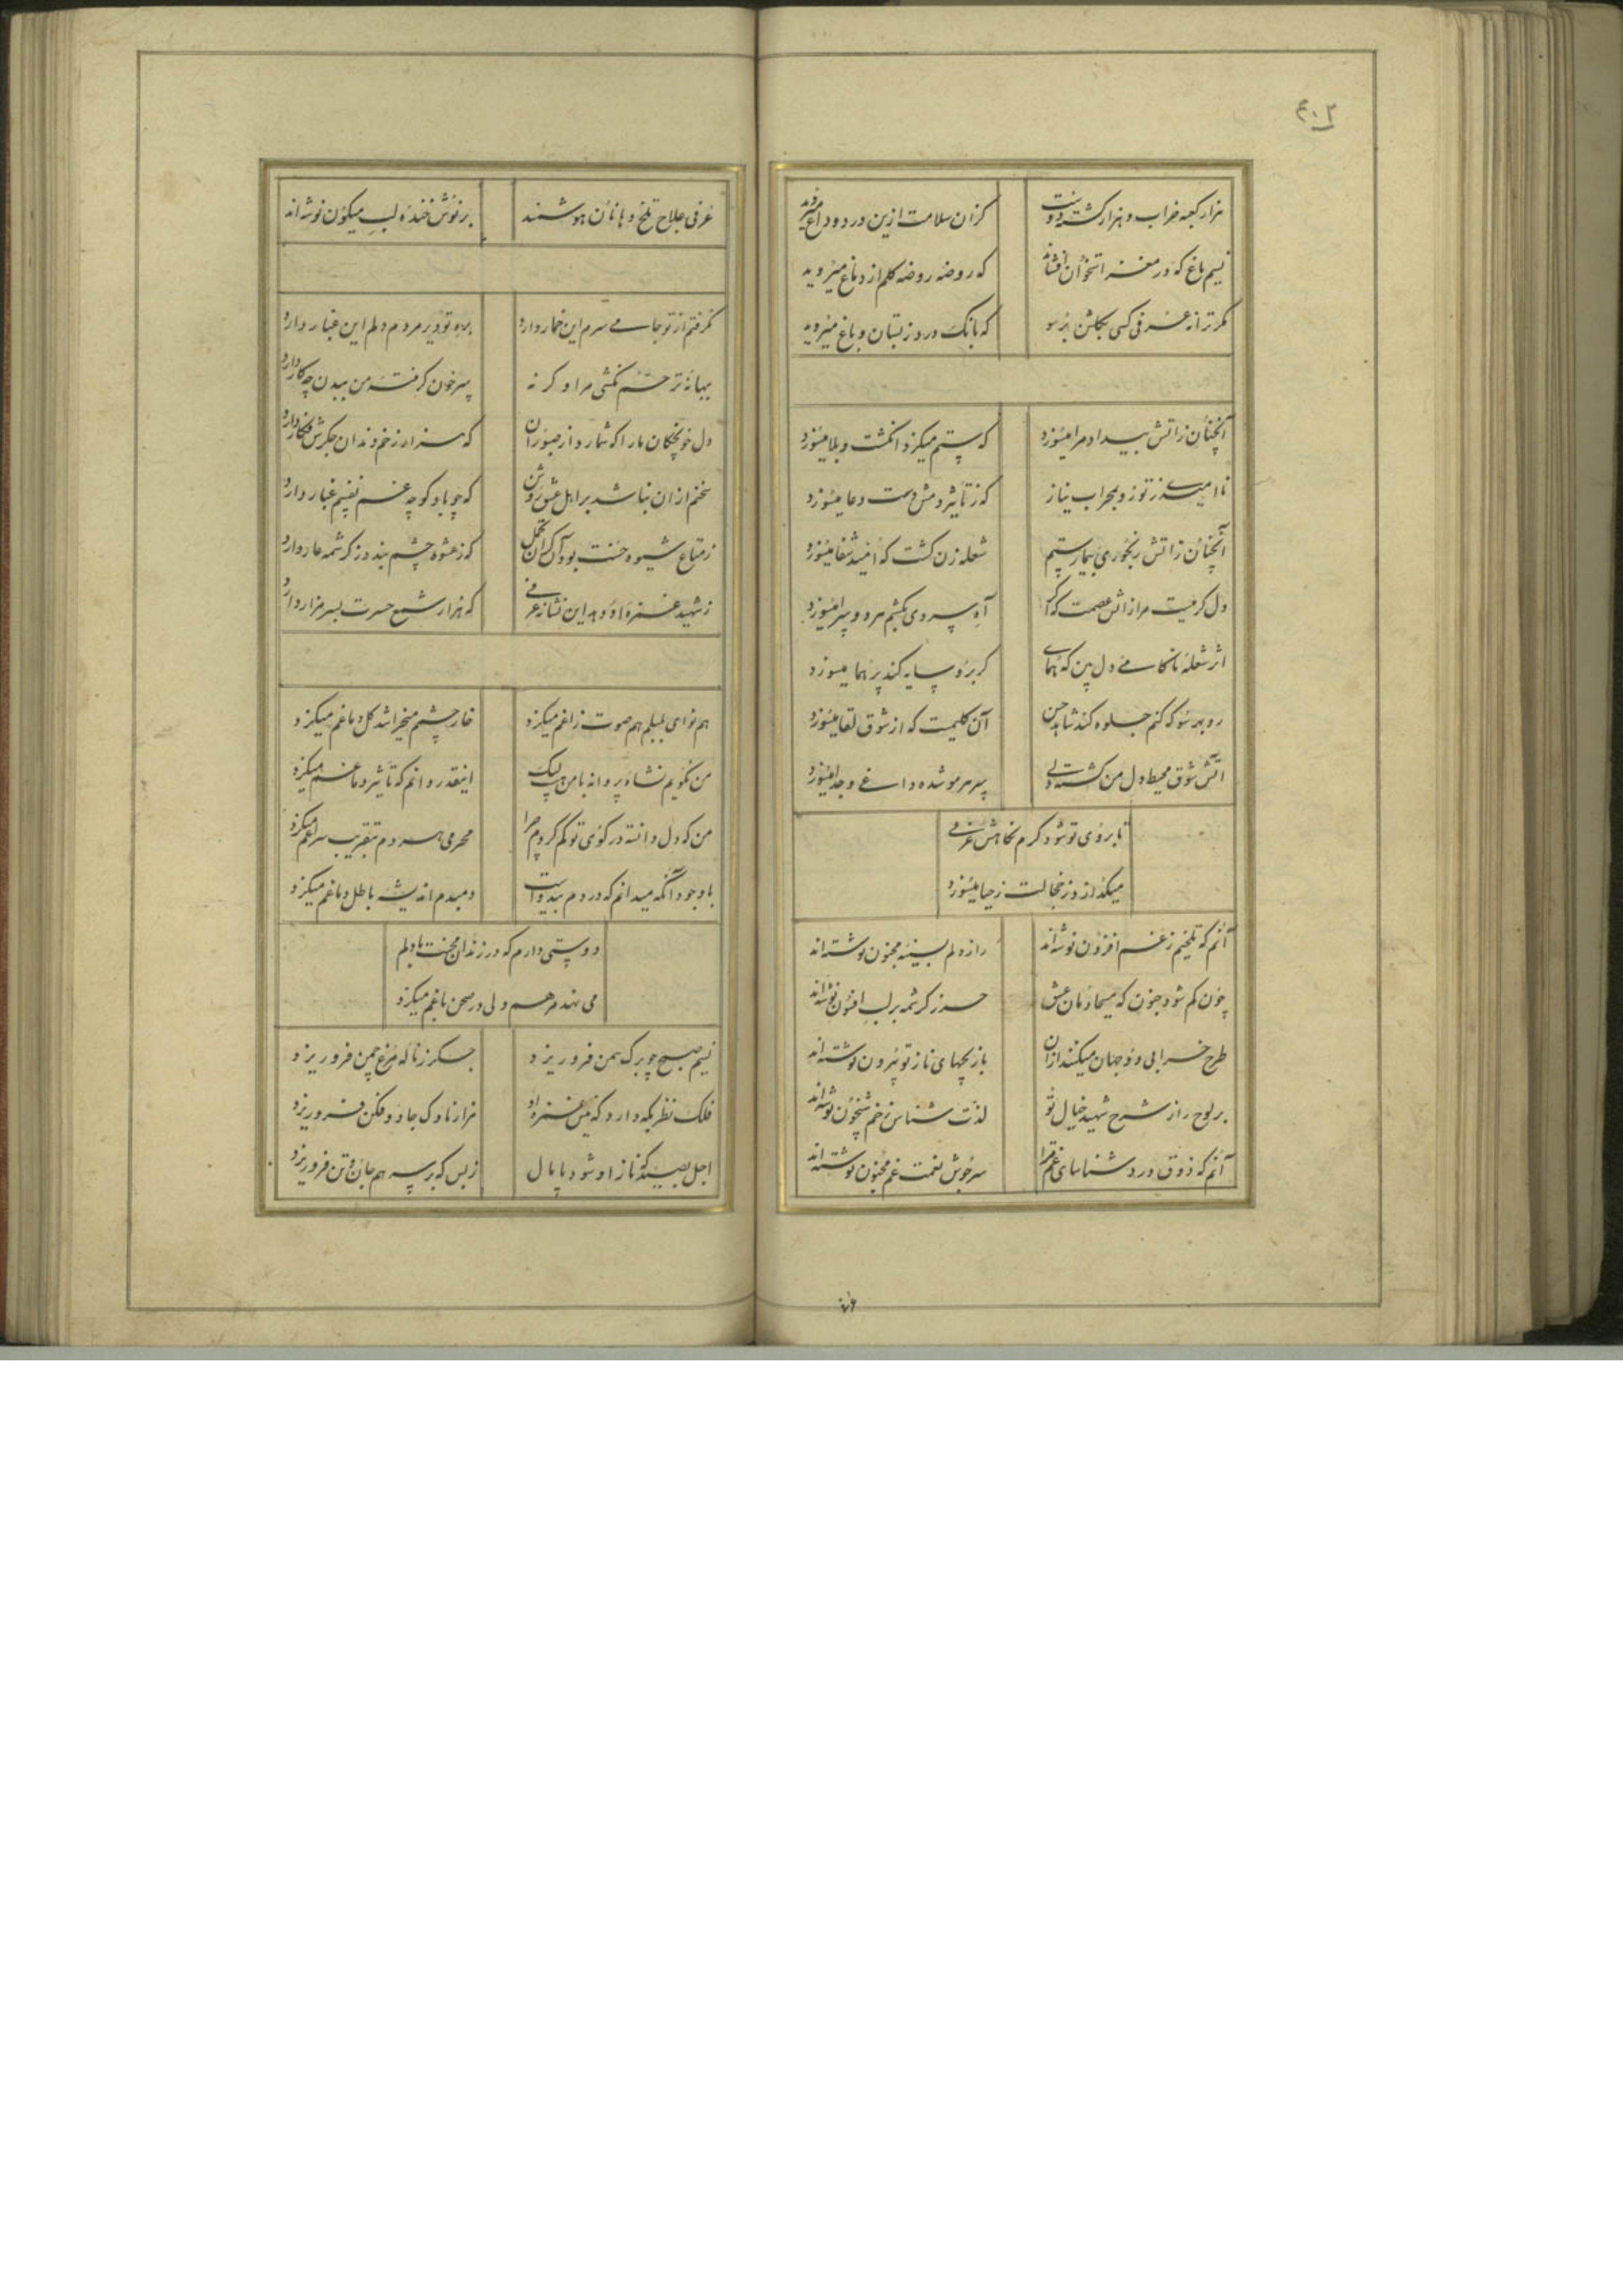 ۴۰۲
هزار کعبه خراب و هزار کشته دوست کزان سلامت ازین درد و داغ میروید
نسیم باغ که در مغز استخوان افشاند که روضه روضه گلم از دماغ میروید
مگر ترانه عرفی کسی بگلشن برد که بانگ درد ز بستان و باغ میروید
آنچنان ز آتش بیداد مرا میسوزد که ستم میگزد انگشت و بلا میسوزد
ناامیدی ز تو زد بمحراب نیاز که ز تأثیر دمش دست دعا میسوزد
آنچنان ز آتش رنجوری بیمار ستیم شعله زن گشت که امید شفا میسوزد
دل گرمیست مرا ز آتش عصمت که اگر آه سردی بکشم مرد و سرا میسوزد
اثر شعله ناکامی دل بین که همای گر برو سایه کند پر هما میسوزد
رو بهر سو که کنم جلوه کند شاهد حسن آن کلیمست که از شوق لقا میسوزد
آتش شوق محیط دل من گشت ولی سر هر مو شده داغی و جدا میسوزد
تا بروی تو شود گرم نگاهش عرفی
میگدازد ز خجالت ز حیا میسوزد
آنم که تلخیم ز غم افزون نوشته‌اند راز دلم بسینه مجنون نوشته‌اند
چون کم شود جنون که مسیحا دمان عشق حرز کرشمه بر لب افسون نوشته‌اند
طرح خرابی دو جهان میکنند ازان بازیچهای ناز تو بیرون نوشته‌اند
بر لوح راز شرح شهید خیال تو لذت شناس زخم شبیخون نوشته‌اند
آنم که ذوق درد شناسای غم مرا سرجوش نعمت غم مجنون نوشته‌اند
عرفی علاج تلخ دهانان هوشمند بر نوش خنده لب میگون نوشته‌اند
گرفتم از تو جامی سرم این خمار دارد بره تو دیر مردم دلم این غبار دارد
بهانه ترحم نکشی مرا وگرنه سر خون گرفته من ببدن چه کار دارد
دل خونچکان ما را که شمارد از صبوران که هزار زخم دندان جگرش فگار دارد
سخنم ازان نباشد بر اهل عشق روشن که چو باد کوچه غم نفسم غبار دارد
ز متاع شیوه حسنت بود آن گران تحمل که ز عشوه چشم بندد ز کرشمه عار دارد
ز شهید غمزه او دهد این نشانه عرفی که هزار شمع حسرت بسر مزار دارد
هم نوای بلبلم هم صوت زاغم میگزد خار چشمم میخراشد گل دماغم میگزد
من نگویم نشاء پروانه با من لیک اینقدر دانم که تأثیر دماغم میگزد
من که دل دانسته در کوی تو گم کردم چرا محرمی هر دم بتقریب سراغم میگزد
با وجود آنکه میدانم که دردم بیدواست دمبدم اندیشه باطل دماغم میگزد
دوستی دارم که در زندان محنت با دلم
می نهد مرهم ولی در صحن باغم میگزد
نسیم صبح چو برگ سمن فرو ریزد جگر ز ناله مرغ چمن فرو ریزد
فلک نظر بکه دارد که پیش غمزه او هزار ناوک جادو فکن فرو ریزد
اجل بصیدگه ناز او شود پامال ز بس که بر سر هم جان و تن فرو ریزد